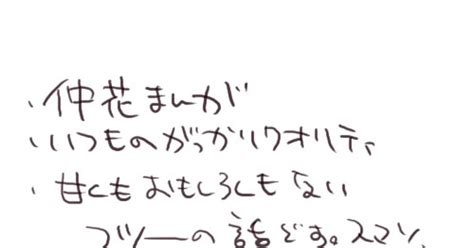 ・仲花まんが
・いつものがっかりクオリティ
・甘くもおもしろくもない
フツーの話です。スマソ、